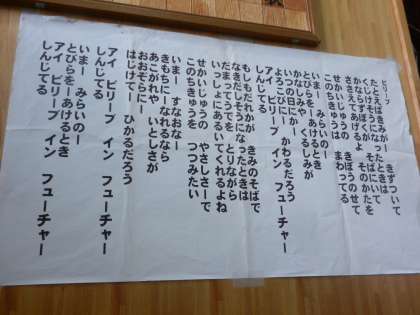 ビリーブ
たとえばきみが　きずついて
くじけそうに　なったときは
かならずぼくが　そばにいて
ささえてあげるよ　そのかたを
せかいじゅうの　きぼうのせて
このちきゅうは　まわってる
いまー　みらいのー
とびらをーあけるとき
かなしみや　くるしみが
いつの日にかー
よろこびにー　かわるだろう
アイ　ビリーブ　イン　フューチャー
しんじてる
もしもだれかが　きみのそばで
なきだしそうに　なったときは
だまってうでを　とりながら
いっしょにあるいてくれるよね
せかいじゅうの　やさしさーで
このちきゅうを　つつみたい
いまー　すなおなー
きもちにーなれるなら
あこがれや　いとしさが
おおぞらにー
はじけてー　ひかるだろう
アイ　ビリーブ　イン　フューチャー
しんじてる
いまー　みらいのー
とびらをーあけるとき
アイ　ビリーブ　イン　フューチャー
しんじてる